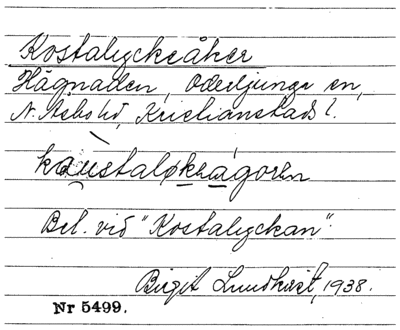 Kostalyckeåker
Hågnaden, Oderljunga sn,
N. Åsbo hd, Kristianstads l.
Bel. vid "Kostalyckan".
Birgit Lundkvist, 1938.
Nr 5499.